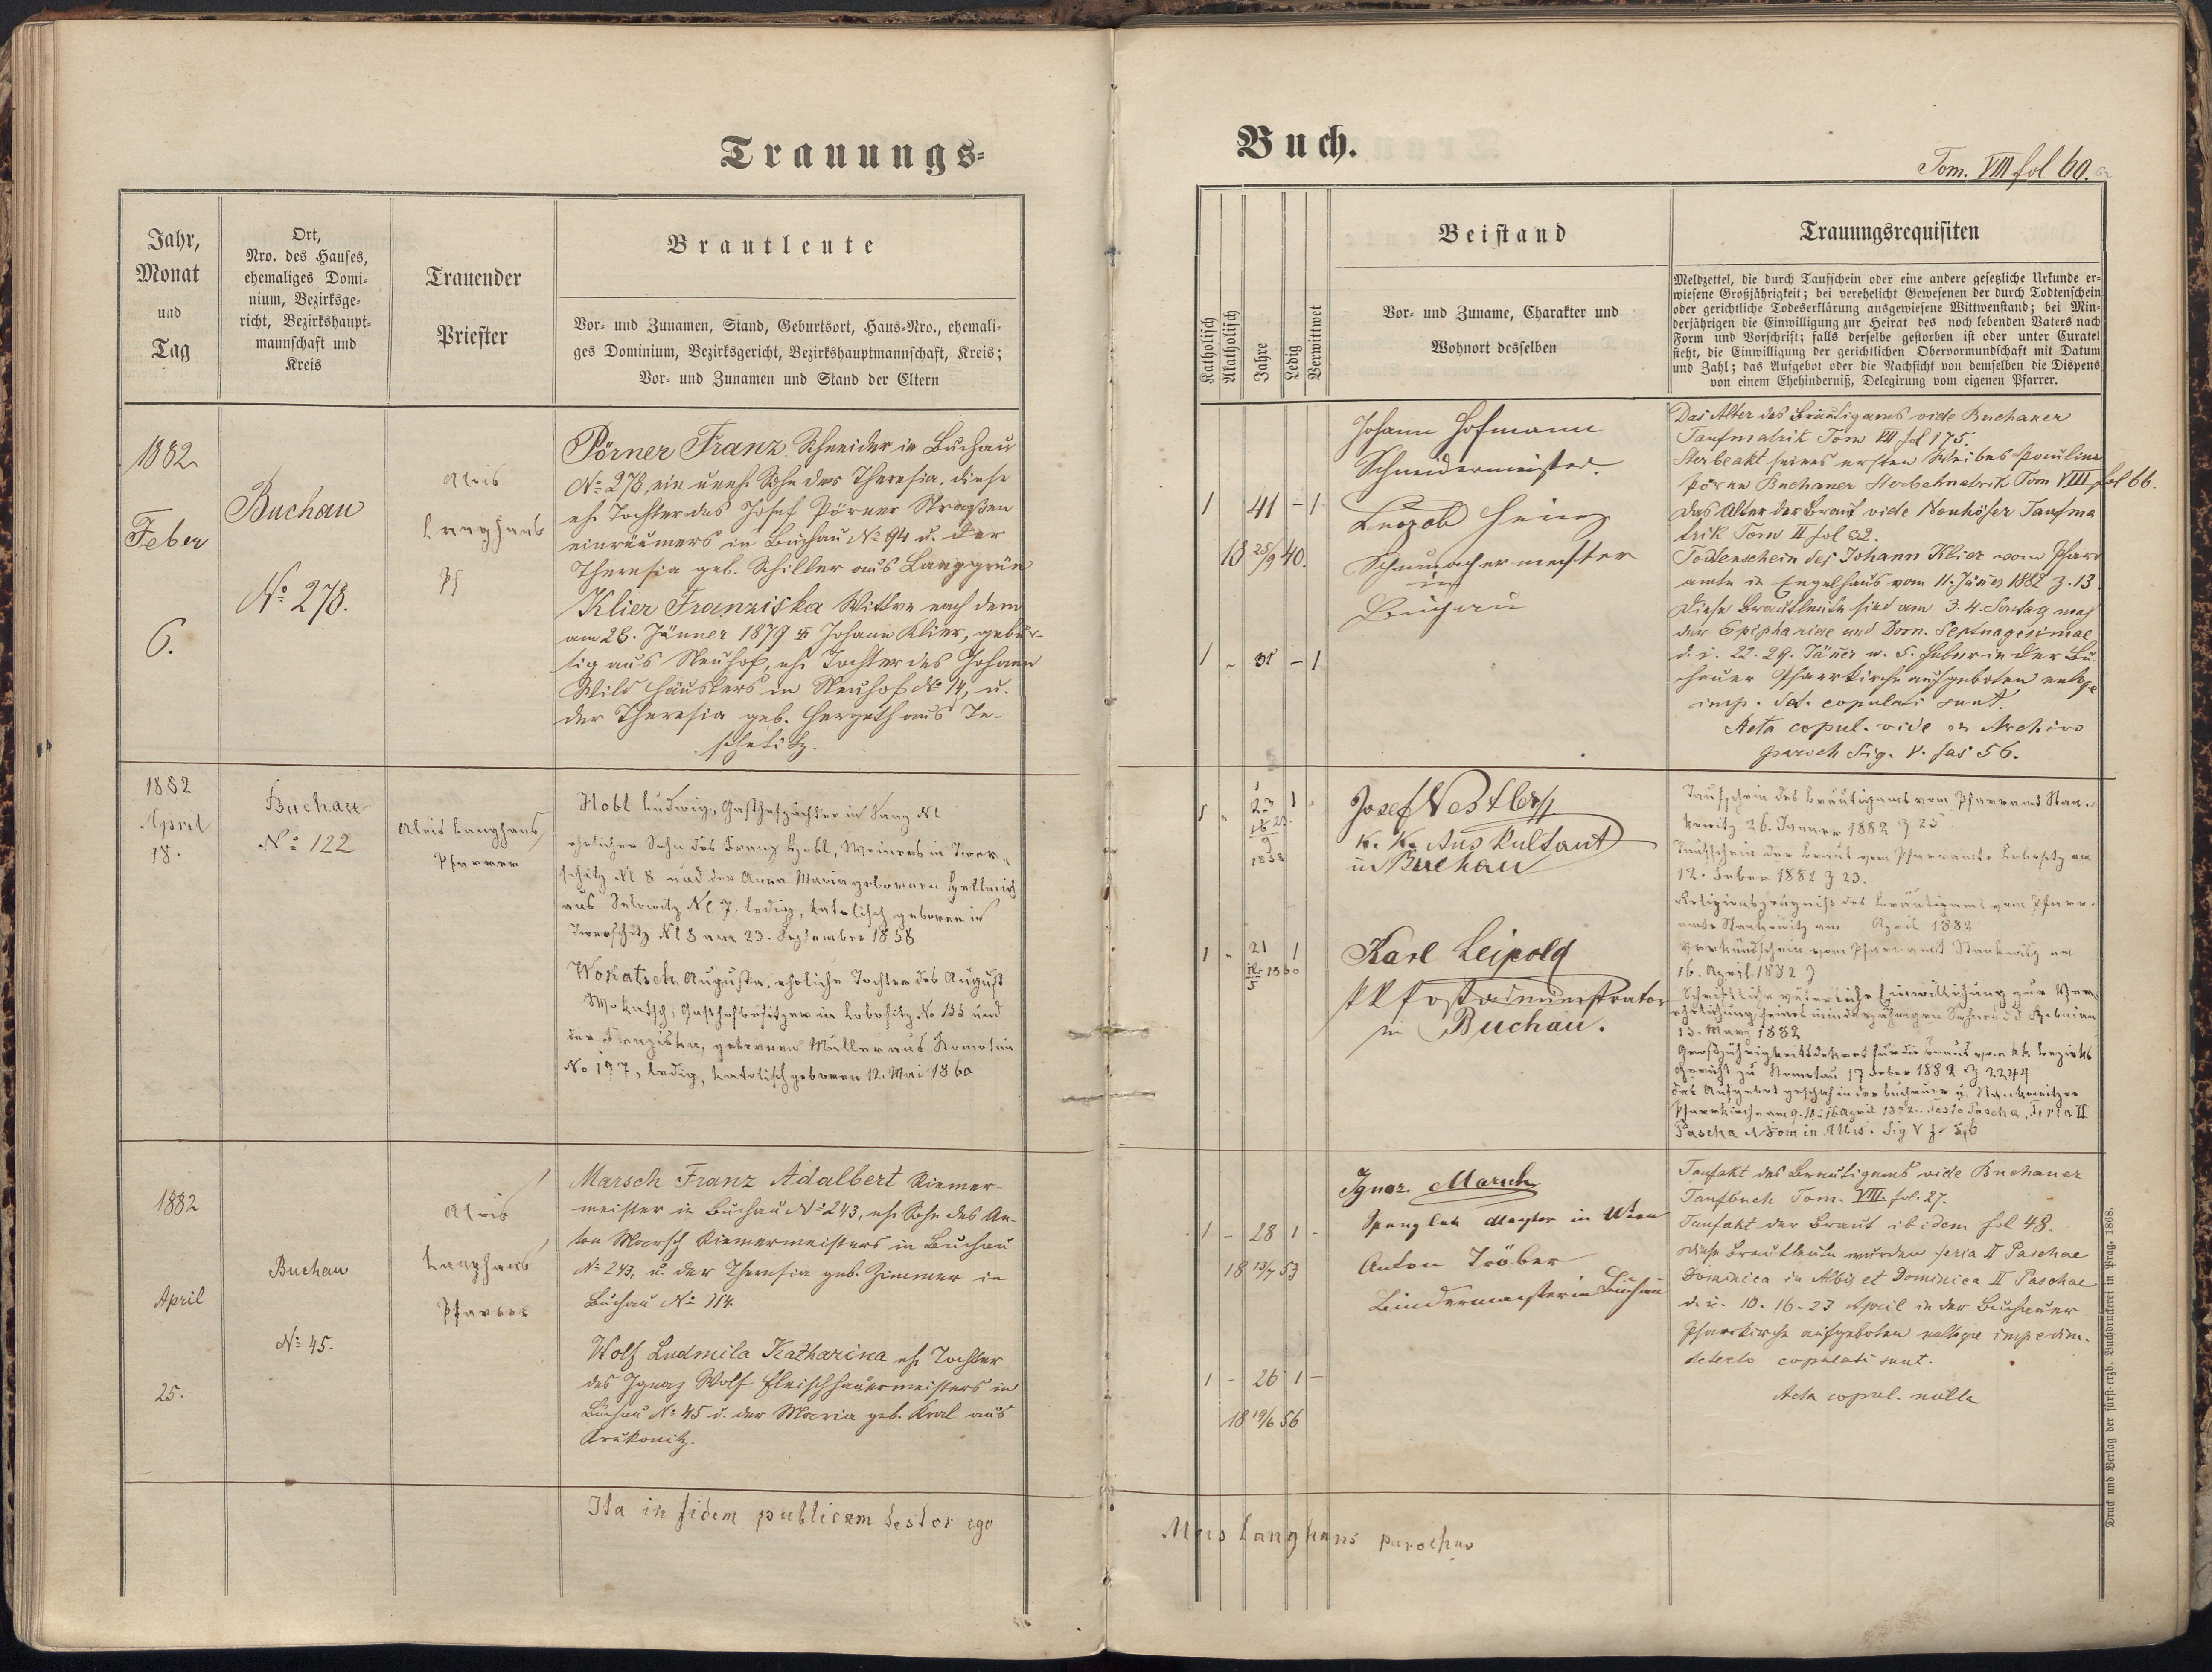 Trauungs=
Buch.
Tom. VIII fol 60.
Jahr,
Monat
und
Tag
Ort,
Nro. des Hauses,
ehemaliges Domi-
nium, Bezirksge-
richt, Bezirkshaupt-
mannschaft und
Kreis
Trauender
Priester
Brautleute
Vor- und Zunamen, Stand, Geburtsort, Haus-Nro., ehemali-
ges Dominium, Bezirksgericht, Bezirkshauptmannschaft, Kreis;
Vor- und Zunamen und Stand der Eltern
Katholisch
Akatholisch
Jahre
Ledig
Verwittwet
Beistand
Vor- und Zuname, Charakter und
Wohnort desselben
Trauungsrequisiten
Meldzettel, die durch Taufschein oder eine andere gesetzliche Urkunde er-
wiesene Großjährigkeit; bei verehelicht Gewesenen der durch Todtenschein
oder gerichtliche Todeserklärung ausgewiesene Wittwenstand; bei Min-
derjährigen die Einwilligung zur Heirat des noch lebenden Vaters nach
Form und Vorschrift; falls derselbe gestorben ist oder unter Curatel
steht, die Einwilligung der gerichtlichen Obervormundschaft mit Datum
und Zahl; das Aufgebot oder die Nachsicht von demselben die Dispens
von einem Ehehinderniß, Delegirung vom eigenen Pfarrer.
1882
Feber
6.
Buchau
No 278.
Alois
Langhans
Pf
Pörner Franz Schneider in Buchau
No 278, ein uneh. Sohn der Theresia, diese
eh. Tochter des Josef Pörner Straßen
einräumers in Buchau No 94 u. der
Theresia geb. Schiller aus Langgrün
Klier Franziska Wittwe nach dem
am 28. Jänner 1879 Johann Klier, gebür-
tig aus Neuhof, eh. Tochter des Johann
Wild Häuslers in Neuhof No 14, u.
der Theresia geb. Hergeth aus Te-
schetitz.
1 41 - 1
18 25/9 40.
1 - 31 - 1
Johann Hofmann
Schneidermeister.
Heinz
Schumachermeister
in
Buchau
Das Alter des Bräutigams vide Buchauer
Taufmatrik Tom VII fol 175.
Sterbeakt seines ersten Weibes Pauline
Pörner Buchauer Sterbematrik Tom VIII fol 66.
Das Alter der Braut vide Neuhöfer Taufma
trik Tom II fol 32.
Todtenschein des Johann Klier vom Pfarr
amte in Engelhaus vom 11. Jänner 1882 Z. 13.
Diese Brautleute sind am 3. 4. Sontag nach
der Epiphaniae und Dom. Septuagesimae
d. i. 22. 29. Jäner u. 5. Feber in der Bu-
chauer Pfarrkirche aufgeboten
imp. det. copulati sunt.
Acta copul. vide in Archivo
paroch Sig. V. fas 56.
1882
April
18.
Buchau
No 122
Alois Langhans
Pfarrer
Hobl Ludwig, Gasthofpächter in
ehelicher Sohn des Franz Hobl, in Twer-
schitz No 8 und der Anna Maria gebornen
aus No 7. ledig, katolisch geboren in
Twerschitz No 8 am 23. September 1858
Wokatsch Augusta, eheliche Tochter des August
Wokatsch, Gasthofbesitzer in Lobositz No 155 und
der Franziska, gebornen Müller aus Komotau
No 197, ledig, katolisch geboren 12. Mai 1860
1 23 1
9
1858
1 21 1
12 1860
5
Josef Nestler
k. k. Auskultant
in Buchau
Karl Leipold
k k Postadministrator
in Buchau.
Taufschein des Bräutigams vom Pfarramt Stan-
kowitz 26. Januar 1882 Z 25
Taufschein der Braut vom Pfarramte Lobositz am
12. Feber 1882 Z 23.
Religionszeugniß des Bräutigams vom Pfarr-
amte Stankowitz am April 1882
Verkündschein vom Pfarramt Stankowitz am
16. April 1882 Z
Schriftliche väterliche Einwilligung zur Ver-
ehelichung seines minderjährigen Sohnes
13. März 1882
Großjährigkeitsdekret für die Braut vom kk Bezirks
gericht zu Komotau 17 Feber 1882 Z 2244
Das Aufgebot geschah in der Buchauer u. Stankowitzer
Pfarrkirche am 9. 10. 16 April 1882. Festo Pascha, Feria II
Pascha et Dom in Albis. Sig V f. 56
1882
April
25.
Buchau
No 45.
Alois
Langhans
Pfarrer
Marsch Franz Adalbert Riemer-
meister in Buchau No 243, eh. Sohn des An-
ton Marsch Riemermeisters in Buchau
No 243, u. der Theresia geb. Zimmer in
Buchau No 114.
Wolf Ludmila Katharina eh. Tochter
des Ignaz Wolf Fleischhauermeisters in
Buchau No 45 u. der Maria geb. Kral aus
Krukonitz.
1 - 28 1 -
18 13/7 53
1 - 26 1 -
18 19/6 56
Ignaz Marsch
Spengler Meister in Wien
Anton Tröber
Bindermeister in Buchau
Taufakt des Bräutigams vide Buchauer
Taufbuch Tom. VIII. fol. 27.
Taufakt der Braut ibidem fol 48.
Diese Brautleute wurden feria II Paschae
Dominica in Albis et Dominica II Paschae
d. i. 10. 16. 23 April in der Buchauer
Pfarrkirche aufgeboten nulloque impedim.
detecto copulati sunt.
Acta copul. nulla
Ita in fidem publicam testor ego
Alois Langhans parochus
Druck und Verlag der fürst-erzb. Buchdruckerei in Prag. 1868.